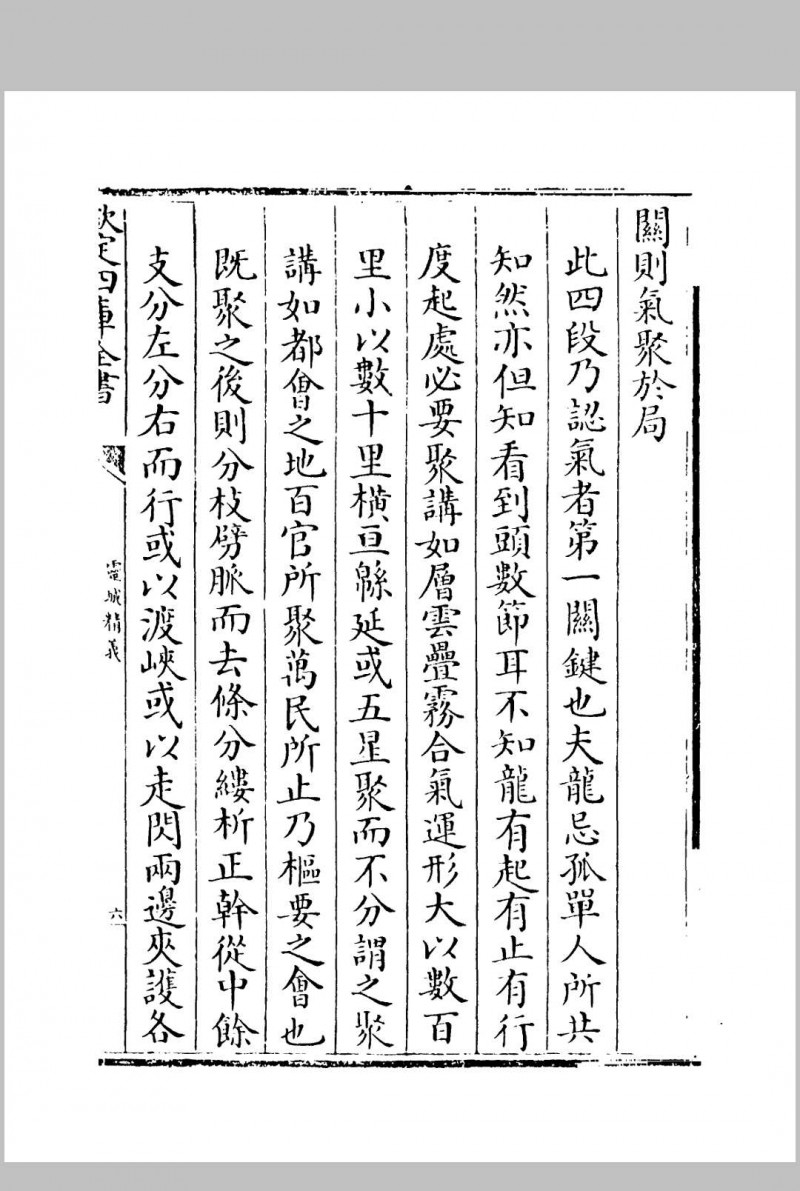 關則氣聚於局
此四段乃認氣者第一關鍵也夫龍忌孤單人所共
知然亦但知看到頭數節耳不知龍有起有止有行
度起處必要聚講如層雲疊霧合氣運形大以數百
里小以數十里橫亘緜延或五星聚而不分謂之聚
講如都會之地百官所聚萬民所止乃樞要之會也
既聚之後則分枝劈脈而去條分縷析正幹從中餘
支分左分右而行或以渡峽或以走閃兩邊夾護各
欽定四庫全書
靈城精義
六